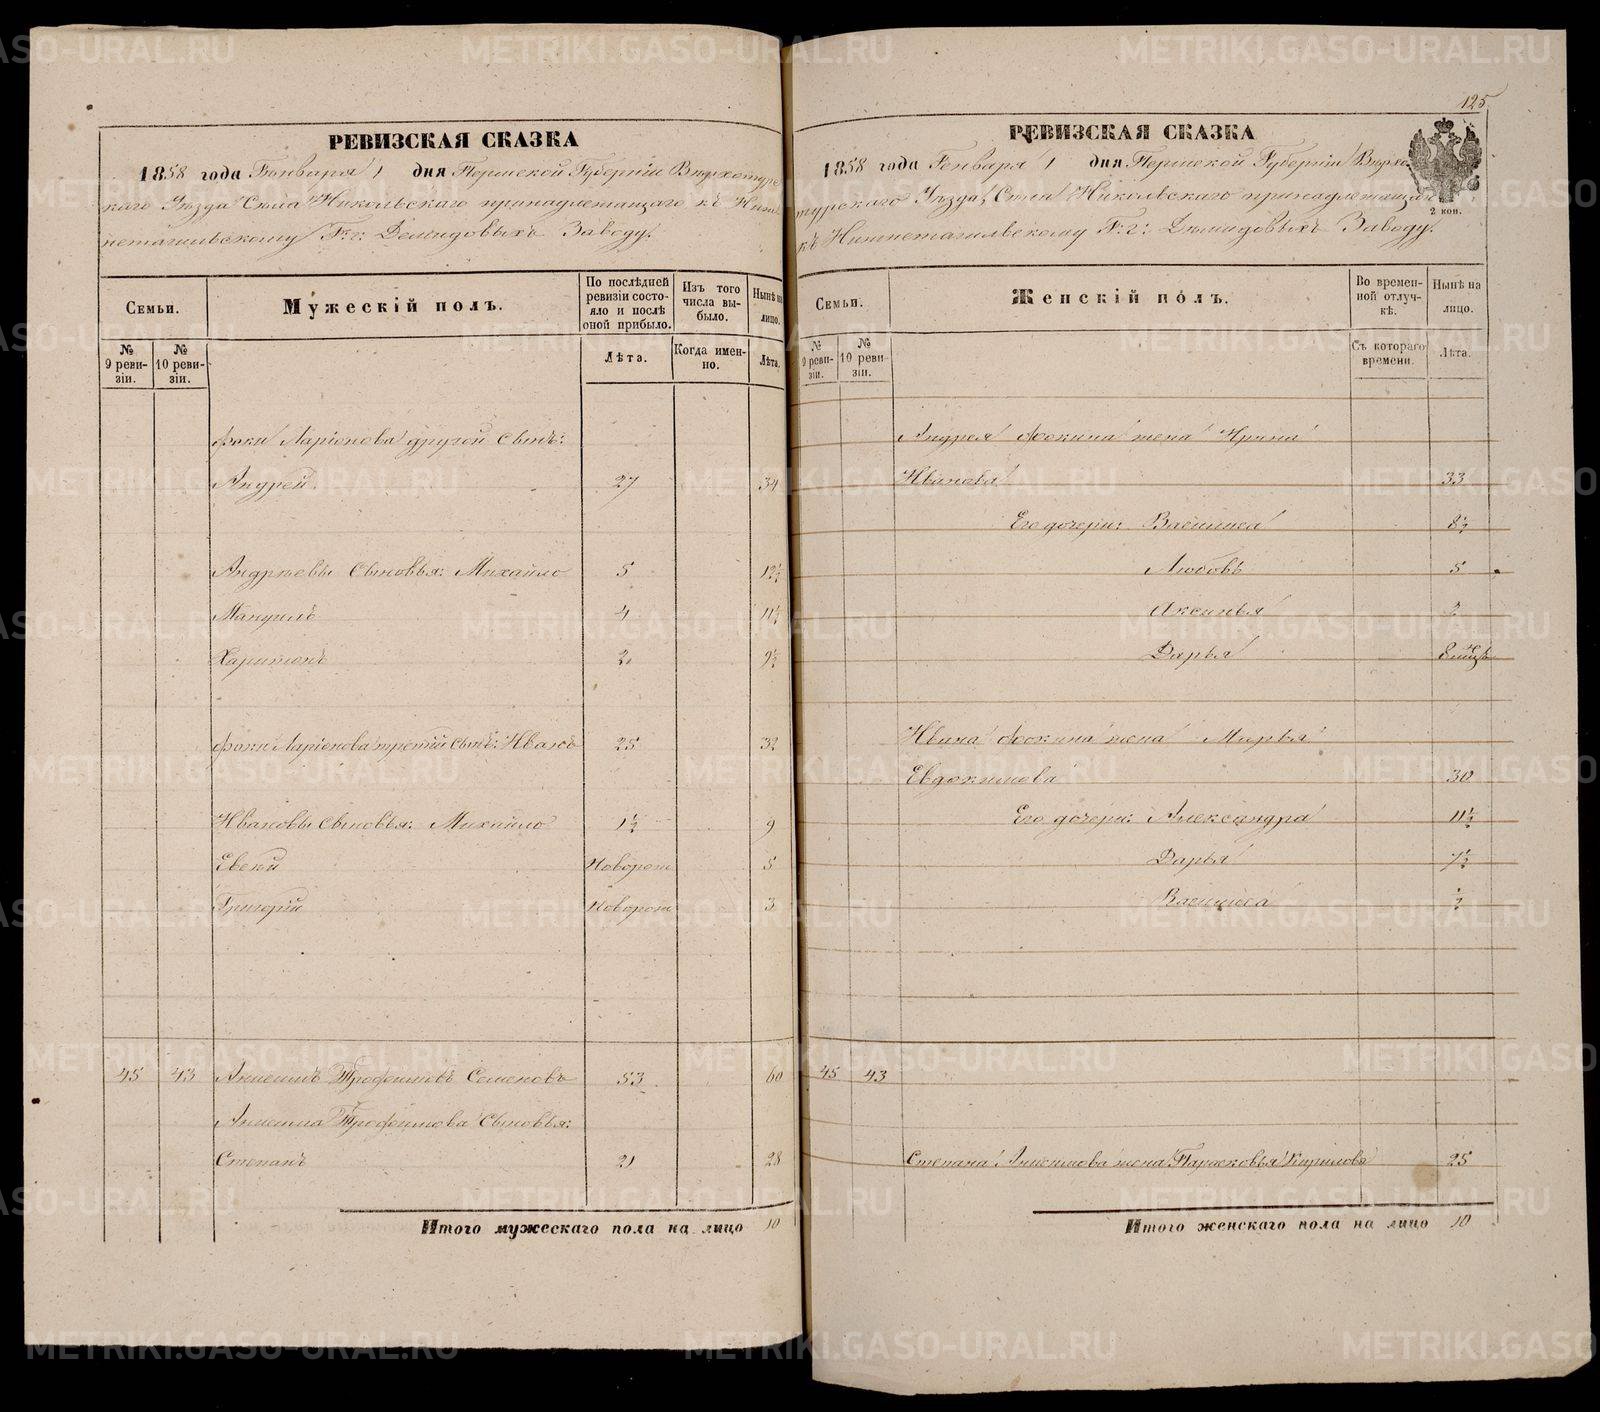 РЕВИЗСКАЯ СКАЗКА
1858 года Генваря 1 дня Пермской Губерніи Верхотурс
каго Уѣзда Села Никольскаго принадлежащаго къ Ниж
нетагильскому Г:г: Демидовыхъ Заводу.
Семьи.
Мужескій полъ.
По послѣдней ревизіи состояло и послѣ оной прибыло.
Изъ того числа выбыло.
Нынѣ на лицо.
№ 9 ревизіи.
№ 10 ревизіи.
Лѣта.
Когда именно.
Лѣта.
Фоки Ларіонова другой сынъ:
Андрей 27 34
Андреевы сыновья: Михайло 5 12½
Мануилъ 4 11½
Харитонъ 2 9½
Фоки Ларіонова третій сынъ: Иванъ 25 32
Ивановы сыновья: Михайло 1½ 9
Евсей Новорож 5
Григорій Новорож 3
45 43 Анисимъ Трофимовъ Семеновъ 53 60
Анисима Трофимова сыновья:
Степанъ 21 28
Итого мужескаго пола на лицо 10
125
РЕВИЗСКАЯ СКАЗКА
1858 года Генваря 1 дня Пермской Губерніи Верхо
турскаго Уѣзда, Села Никольскаго принадлежащаго
къ Нижнетагильскому Г:г: Демидовыхъ Заводу.
2 коп.
Семьи.
Женскій полъ.
Во временной отлучкѣ.
Нынѣ на лицо.
№ 9 ревизіи.
№ 10 ревизіи.
Съ котораго времени.
Лѣта.
Андрея Фокина жена Ирина
Иванова 33
Его дочери: Василиса 8½
Любовь 5
Аксинья 2
Дарья
Ивана Фокина жена Марья
Евдокимова 30
Его дочери: Александра 11½
Дарья 7½
Василиса ½
45 43
Степана Анисимова жена Парасковья Кирилова 25
Итого женскаго пола на лицо 10
METRIKI.GASO-URAL.RU